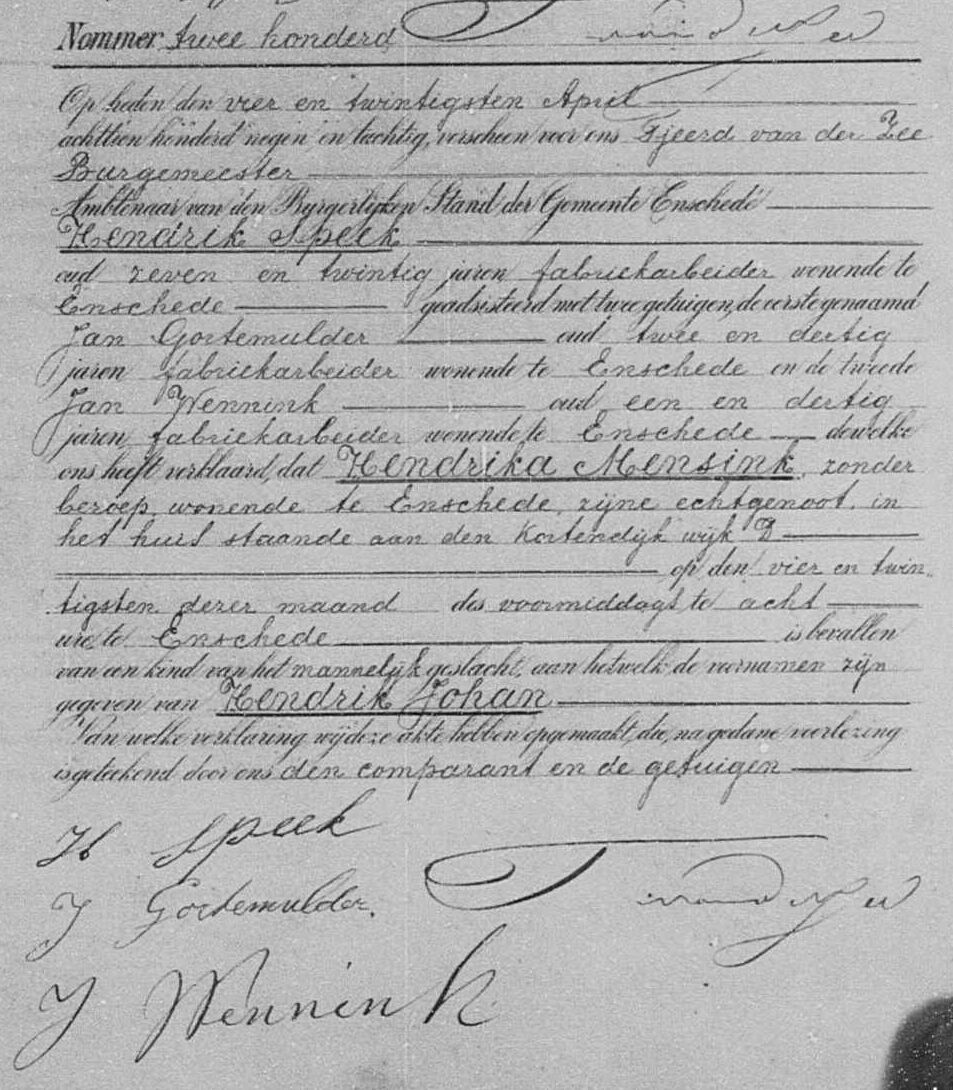 Nommer twee honderd
Op heden den vier en twintigsten April
achttien honderd negen en tachtig, verscheen voor ons Tjeerd van der Zee
Burgemeester
Ambtenaar van den Burgerlijken Stand der Gemeente Enschedé
Hendrik Speek
oud zeven en twintig jaren fabriekarbeider wonende te
Enschede geadsisteerd met twee getuigen, de eerste genaamd
Jan Gortemulder oud twee en dertig
jaren fabriekarbeider wonende te Enschede en de tweede
Jan Wennink oud een en dertig
jaren fabriekarbeider wonende te Enschede dewelke
ons heeft verklaard, dat Hendrika Mensink, zonder
beroep, wonende te Enschede, zijne echtgenoot, in
het huis staande aan den Kortendijk wijk D
op den vier en twin„
tigsten dezer maand des voormiddags te acht
ure te Enschede is bevallen
van een kind van het mannelijk geslacht, aan hetwelk de voornamen zijn
gegeven van Hendrik Johan
Van welke verklaring wij deze akte hebben opgemaakt, die, na gedane voorlezing
is geteekend door ons den comparant en de getuigen
H Speek
J Gortemulder.
T van der Zee
J Wennink